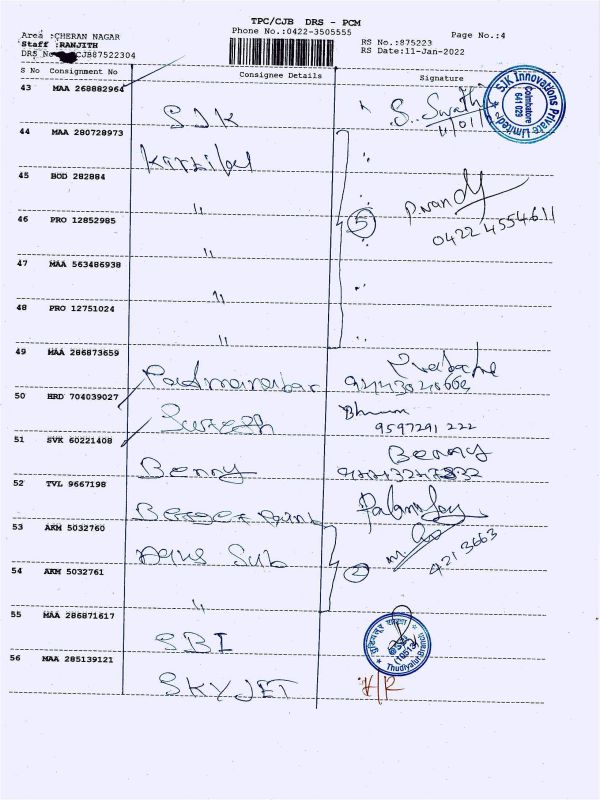 TPC/CJB DRS - PCM
Area :CHERAN NAGAR
Phone No.:0422-3505555
Page No.:4
Staff :RANJITH
RS No.:875223
DRS No CJB87522304
RS Date:11-Jan-2022
S No Consignment No Consignee Details Signature
43 MAA 268882964 SJK S. Swathi
11/01/
SJK Innovations Private Limited
Coimbatore
641 029
44 MAA 280728973
45 BOD 282884 "
46 PRO 12852985 " 5
0422 4554611
47 MAA 563486938 "
48 PRO 12751024 "
49 MAA 286873659 Padmanaban
50 HRD 704039027 Suresh
9597291 222
51 SVK 60221408 Benny Benny
52 TVL 9667198
53 AKM 5032760 Sub
421 3663
54 AKM 5032761 " 2
55 MAA 286871617 SBI
(10513)
Thudiyalur Branch
56 MAA 285139121 SKYJET